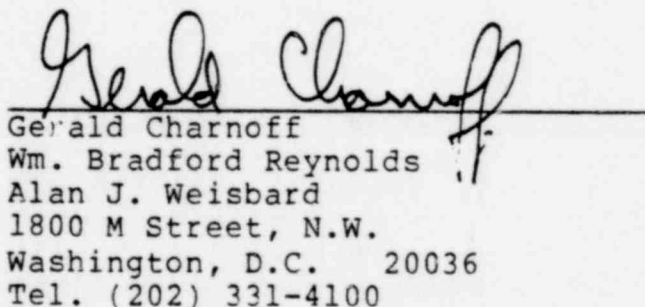 Gerald Charnoff
Gerald Charnoff
Wm. Bradford Reynolds
Alan J. Weisbard
1800 M Street, N.W.
Washington, D.C. 20036
Tel. (202) 331-4100